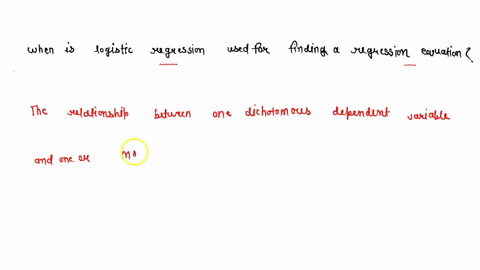 when is logistic regression used for finding a regression equation?
The relationship between one dichotomous dependent variable
and one or mo